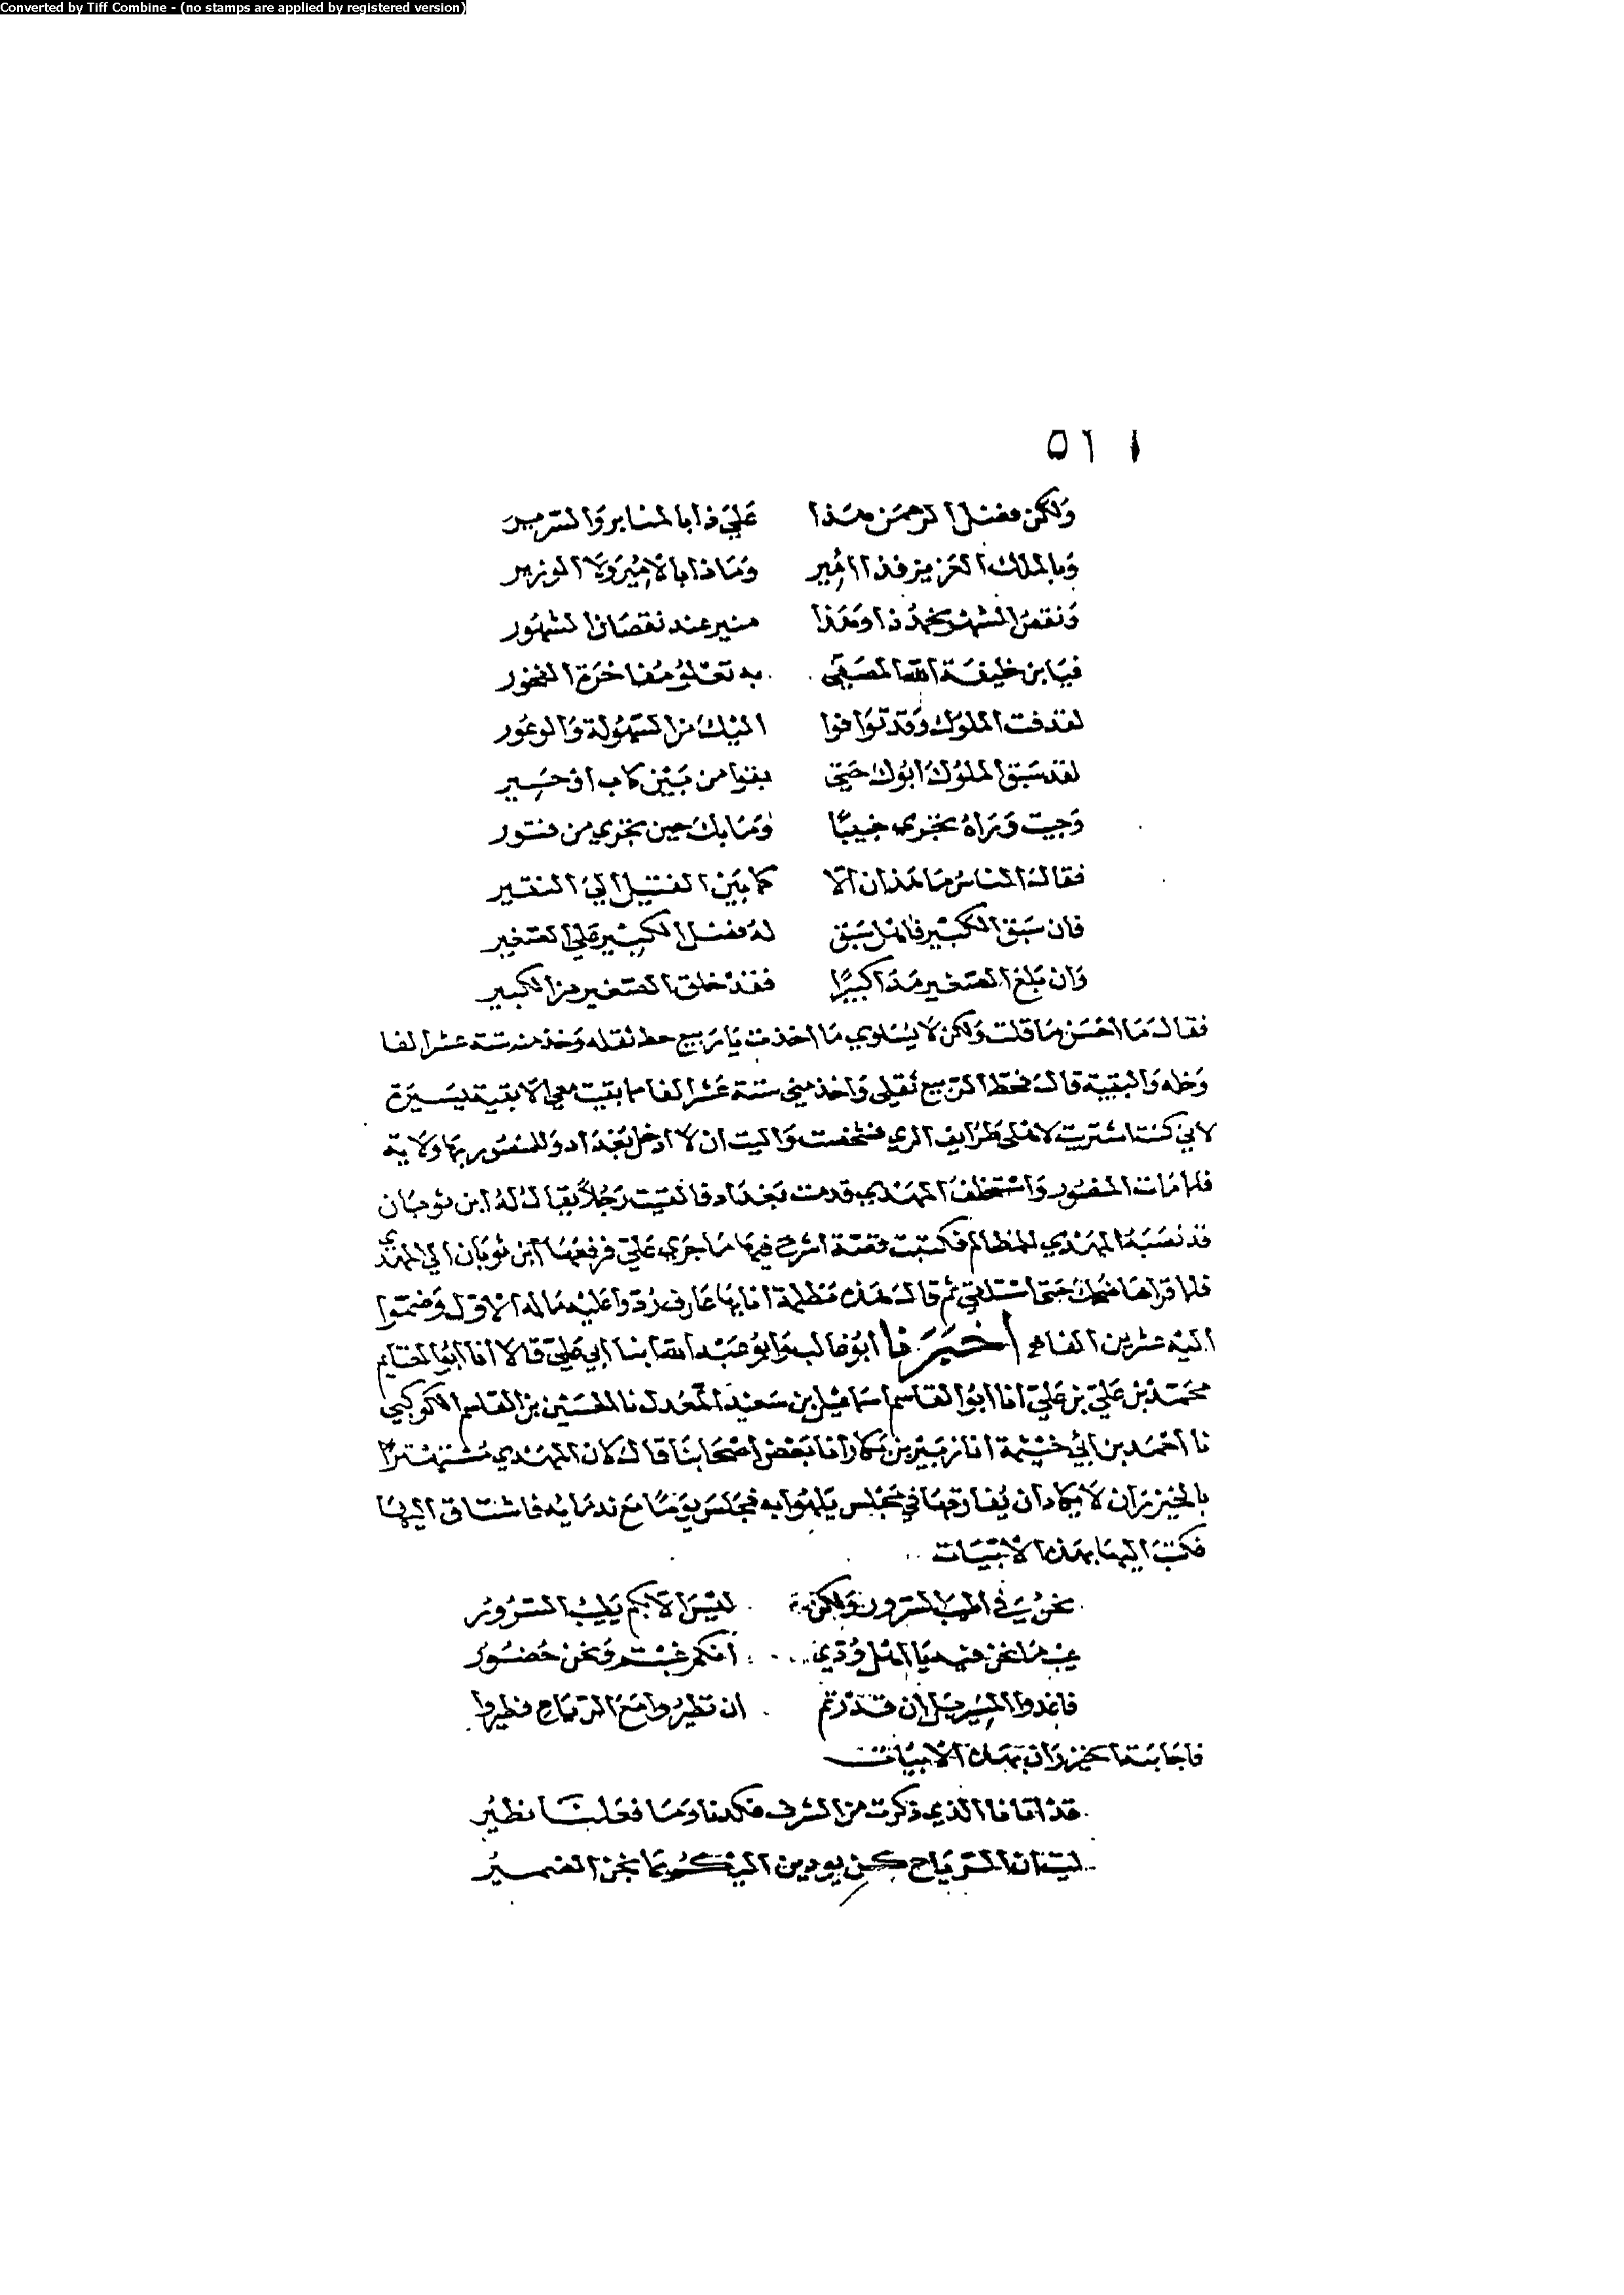 Converted by Tiff Combine - (no stamps are applied by registered version)
٥٦١
ولكن فضل الرحمن هذا علي ذا بالمنابر والسرير
وبالملك العزيز فذا امير وما ذا بالامير ولا الوزير
ونقص الشهر يخمد ذا وهذا منير عند نقصان الشهور
فيا بن خليفة الله المصفى به تعلو مفاخرة الفخور
لقد فت الملوك وقد توافوا اليك من السهولة والوعور
لقد سبق الملوك ابوك حتى بقوا من بين كاب او حسير
وجيت وراه تجري خبيبا وما بك حين تجري من فتور
فقال الناس ما هذان الا كما بين الفتيل الي النقير
فان سبق الكبير فاهل سبق له فضل الكبير علي الصغير
وان بلغ الصغير مدا كبيرا فقد خلق الصغير من الكبير
فقال ما احسن ما قلت ولكن لا يساوي ما اخذت يا ربيع حط ثقله وخذ منه ستة عشر الفا
وخله والبقية قال فحط الربيع ثقلى واخذ مني ستة عشر الفا ما بقيت معي الا بقية يسيرة
لاني كنت اشتريت لاهلي طرايف الري فشخصت واليت ان لا ادخل بغداد وللمنصور بها ولاية
فلما مات المنصور واستخلف المهدي قدمت بغداد فالفيت رجلا يقال له ابن ثوبان
قد نصبه المهدي للمظالم فكتبت قصة اشرح فيها ما جري علي فرفعها ابن ثوبان الي المهدي
فلما قراها ضحك حتى استلقي ثم قال هذه مظلمة انا بها عارف ردوا عليه ماله الاول وضموا
اليه عشرين الفا اخبرنا ابو غالب وابو عبد الله ابنا ابي علي قالا انا ابو الغنايم
محمد بن علي بن علي انا ابو القاسم اسماعيل بن سعيد المعدل نا الحسين بن القاسم الكوكبي
نا احمد بن ابي خيثمة انا زبير بن بكار انا بعض اصحابنا قال كان المهدي مستهترا
بالخيزران لا يكاد ان يفارقها في مجلس يلهوا به فجلس يوما مع ندمايه فاشتاق اليها
فكتب اليها بهذه الابيات
نحن في اطيب السرور ولكن ليس الا بكم يطيب السرور
عيب ما نحن فيه يا اهل ودي انكم غبتم ونحن حضور
فاغدوا المسير بل ان قدرتم ان تطيروا مع الرياح فطيروا
فاجابته الخيزران بهذه الابيات
قد اتانا الذي ذكرت من الشوق فكدنا وما فعلنا نطير
ليت ان الرياح كن يودين اليكم ما يجن الضمير